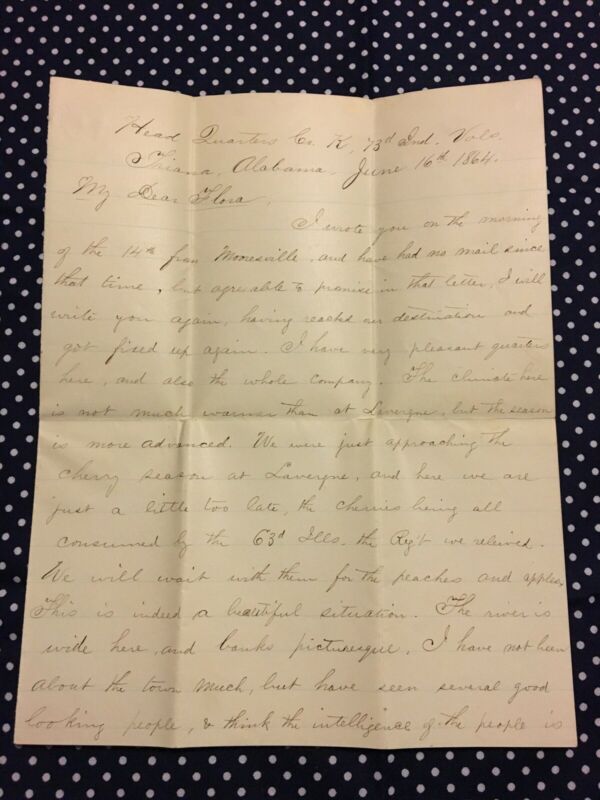 Head Quarters Co. K, 73d Ind. Vols.
Triana, Alabama. June 16th 1864.
My Dear Flora,
I wrote you on the morning
of the 14th from Mooresville, and have had no mail since
that time, but agreeable to promise in that letter, I will
write you again, having reached our destination and
got fixed up again. I have very pleasant quarters
here, and also the whole company. The climate here
is not much warmer than at Lavergne, but the season
is more advanced. We were just approaching the
cherry season at Lavergne, and here we are
just a little too late, the cherries being all
consumed by the 63d Ills. the Reg't we relieved.
We will wait with them for the peaches and apples.
This is indeed a beautiful situation. The river is
wide here, and banks picturesque. I have not been
about the town much, but have seen several good
looking people, & think the intelligence of the people is